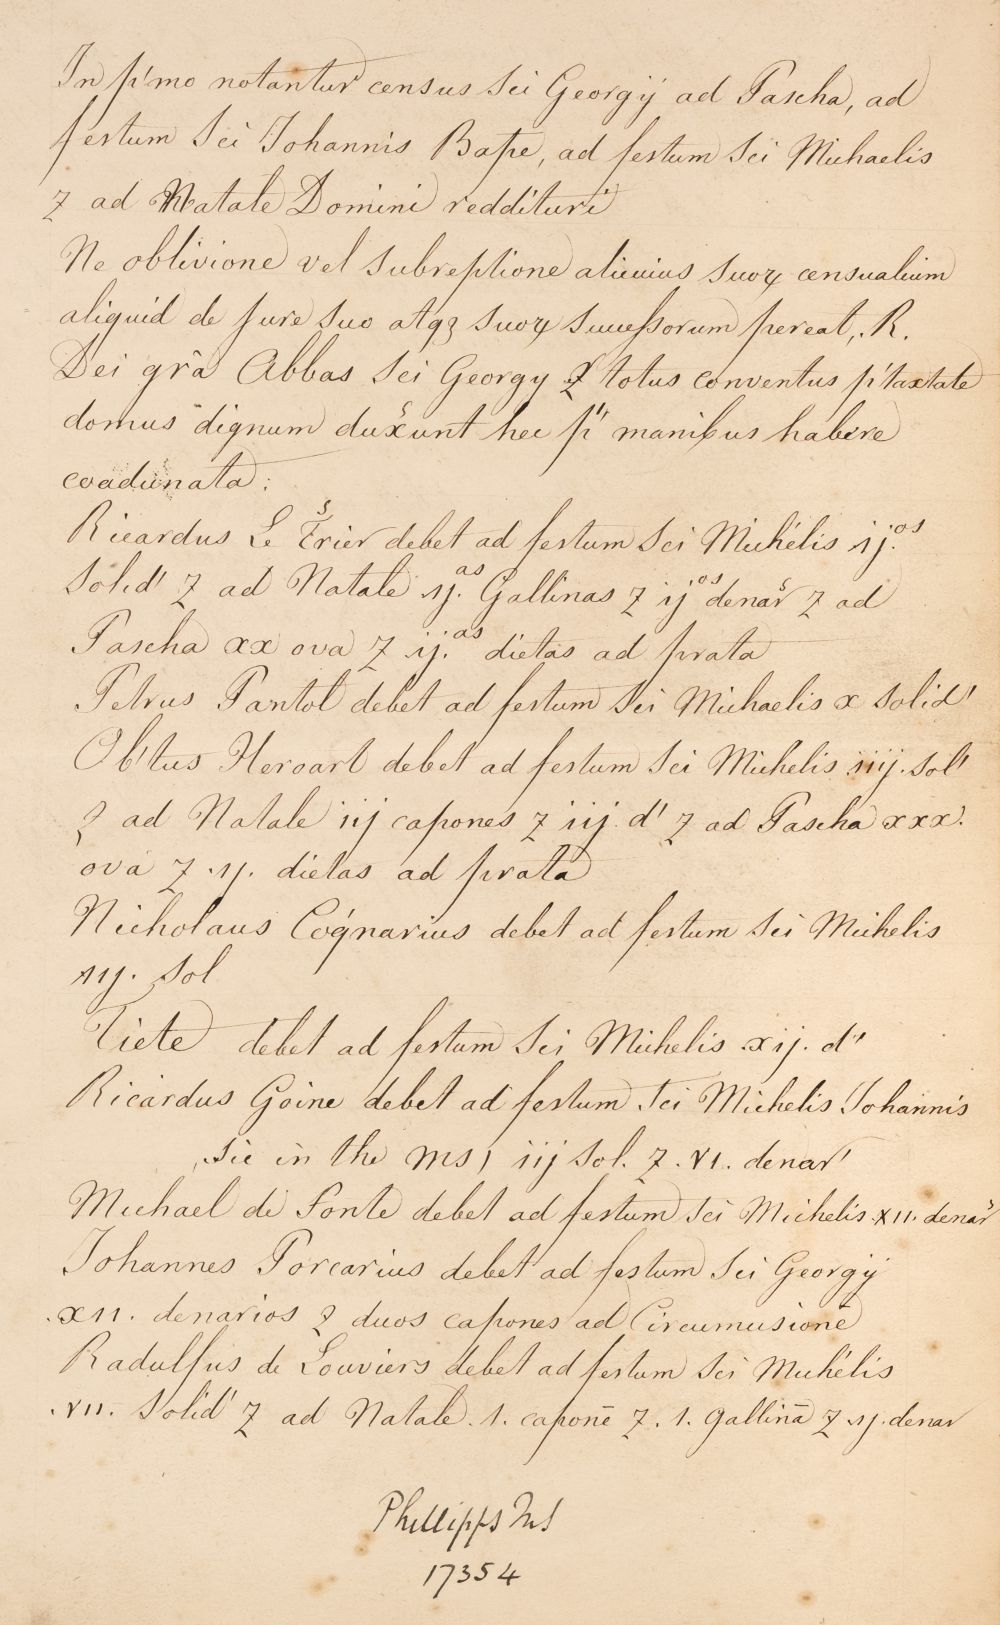 In p'mo notantur census Sci Georgij ad Pascha, ad
festum Sci Johannis Bapte, ad festum Sci Michaelis
⁊ ad Natale Domini reddituri
Ne oblivione vel subreptione alicuius suoꝝ censualium
aliquid de jure suo atqꝫ suoꝝ successorum pereat, .R.
Dei grâ Abbas Sci Georgy ⁊ totus conventus p'taxtate
domus dignum duxunt hec p' manibus habere
coadunata:
Ricardus Le Trier debet ad festum Sci Michelis ij.os
Solid' ⁊ ad Natale ij.as Gallinas ⁊ ijos denar ⁊ ad
Pascha xx ova ⁊ ij.as dietas ad prata
Petrus Pantol debet ad festum Sci Michaelis x Solid'
Ob'tus Heroart debet ad festum Sci Michelis iiij. Sol'
⁊ ad Natale iij capones ⁊ iij d' ⁊ ad Pascha xxx.
ova ⁊ .ij. dietas ad prata
Nicholaus Cog'narius debet ad festum Sci Michelis
iij. Sol
Tiete debet ad festum Sci Michelis .xij. d'
Ricardus Goine debet ad festum Sci Michelis Johannis
(sic in the MS) iij Sol. ⁊ .vi. denar'
Michael de Fonte debet ad festum Sci Michelis .xii. denar
Johannes Porcarius debet ad festum Sci Georgij
.xii. denarios ⁊ duos capones ad Circumcisionē
Radulfus de Louviers debet ad festum Sci Michelis
.vii. Solid' ⁊ ad Natale .1. caponē ⁊ .1. gallinā ⁊ .ij. denar
Phillipps MS
17354